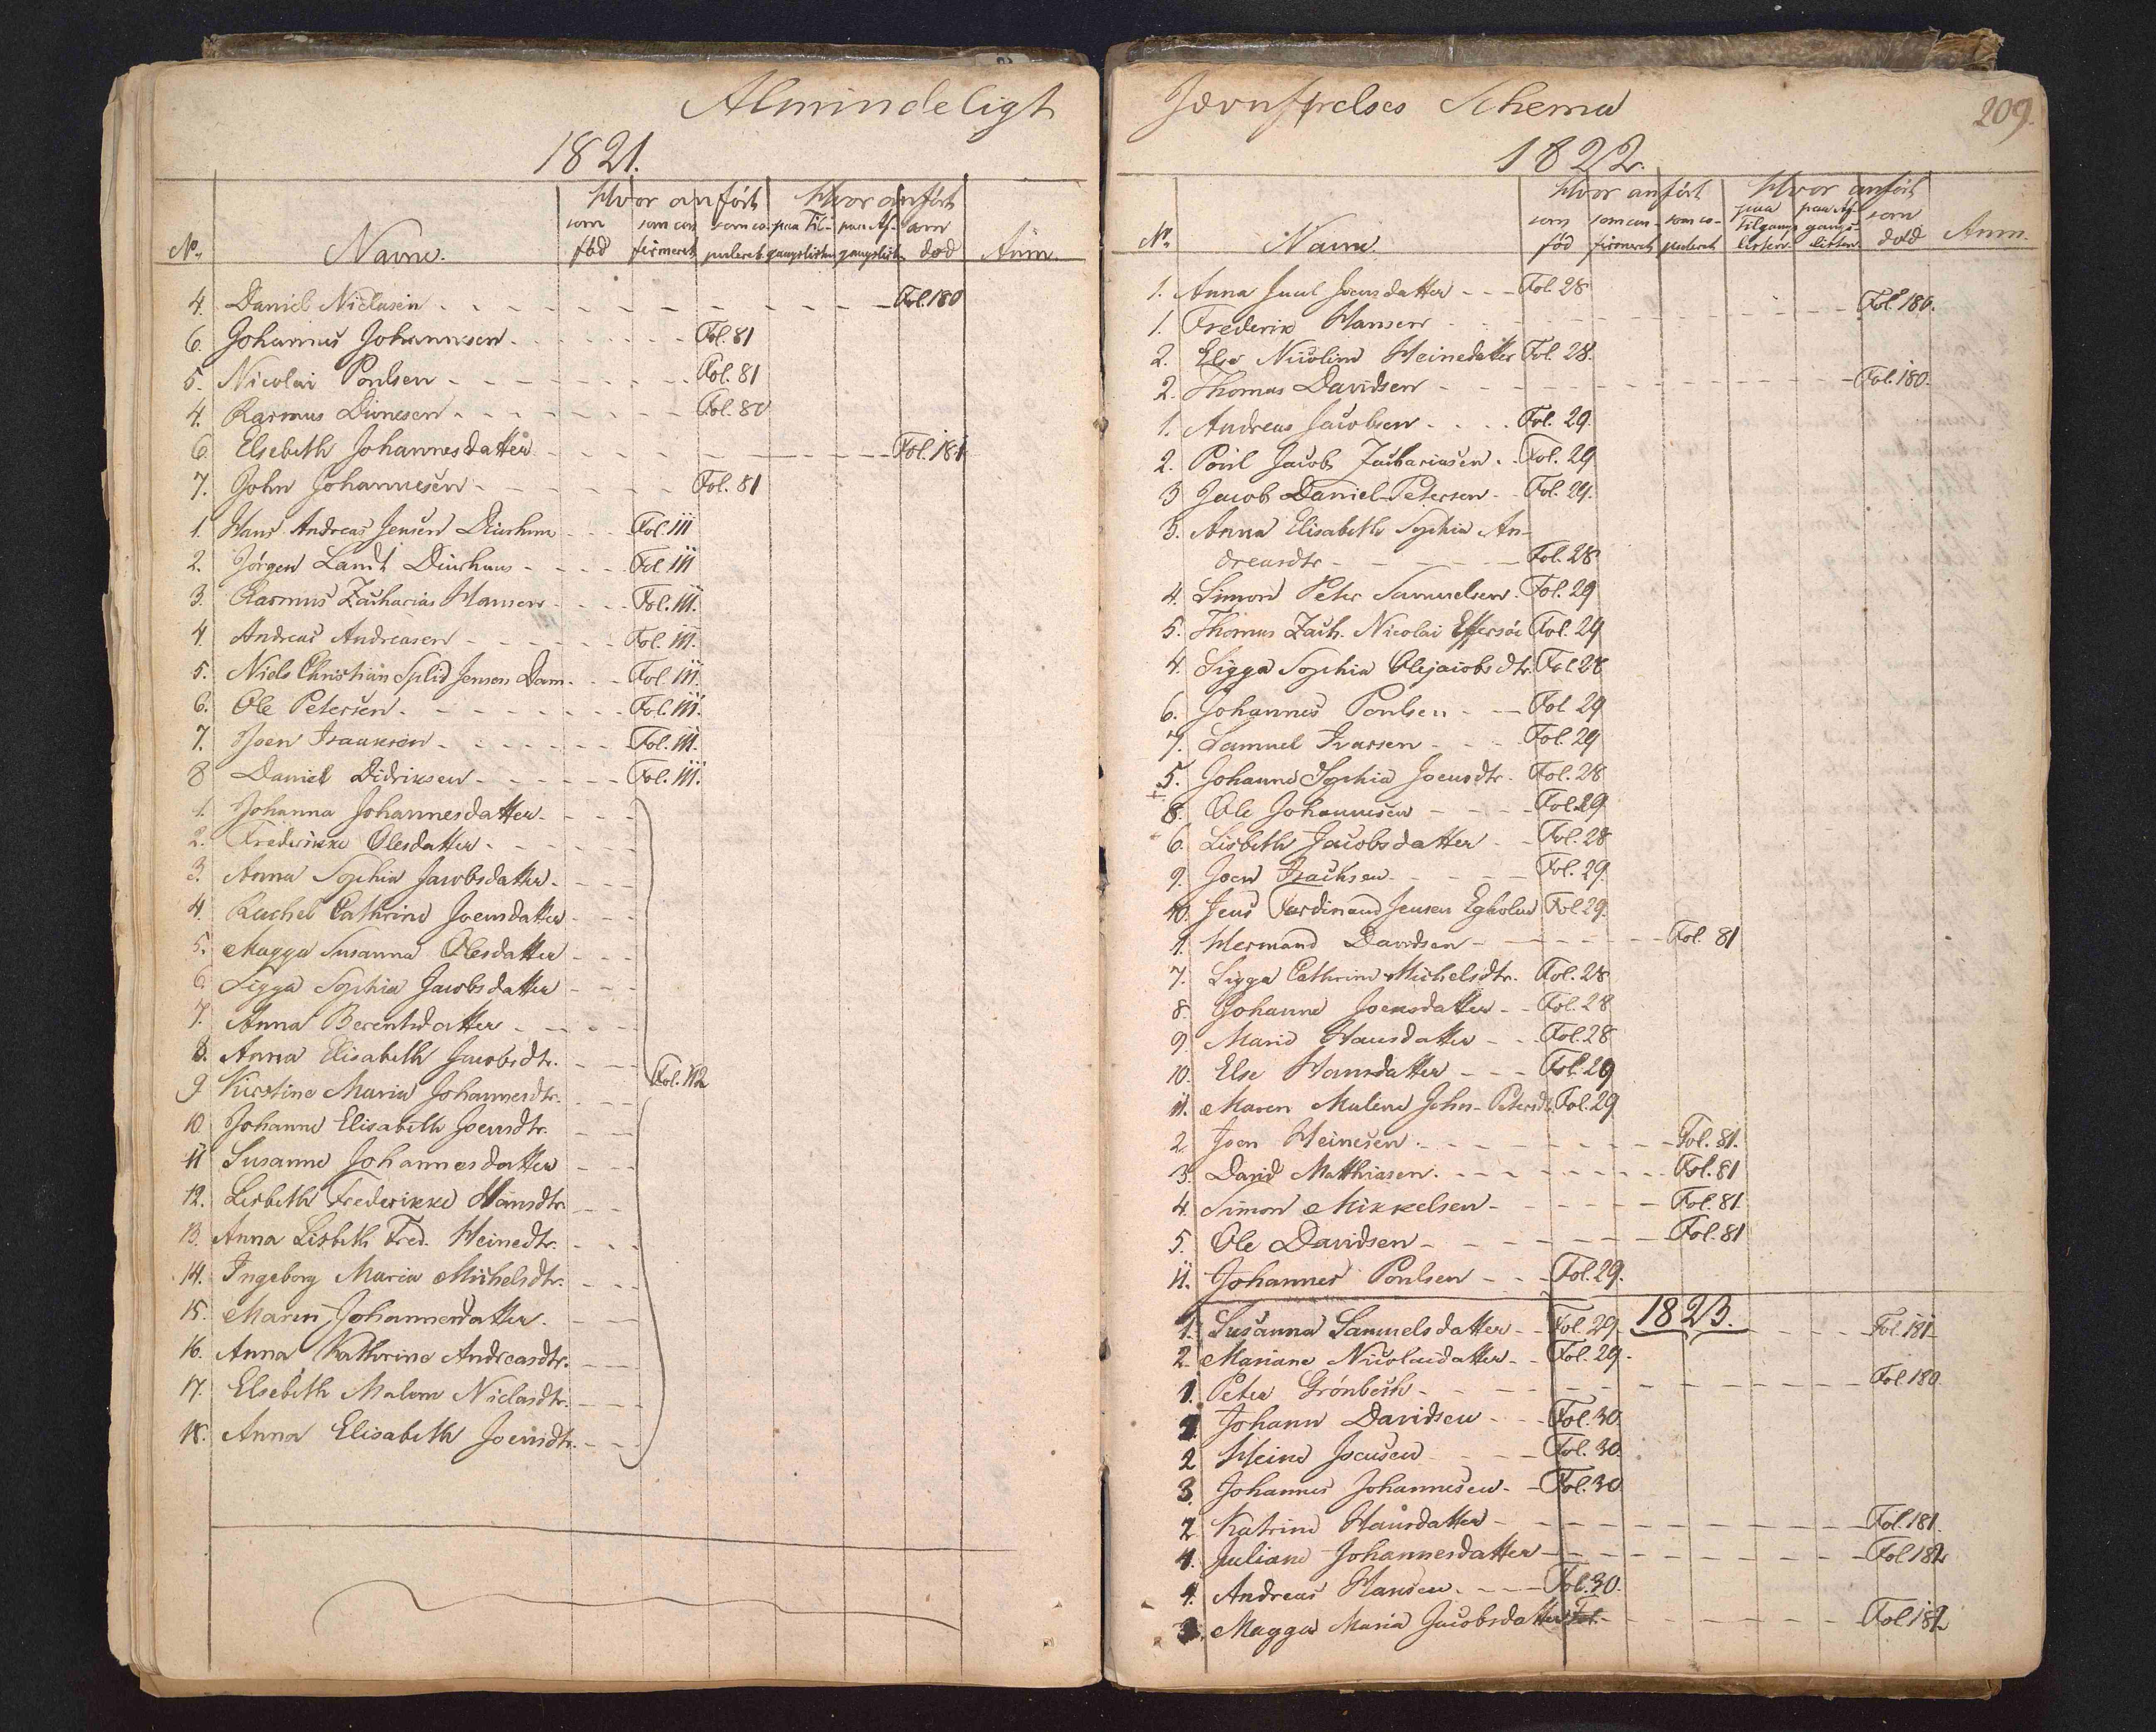 Almindeligt
1821.
Hvor anført Hvor anført
No. Navne. som fød som con firmeret som co- puleret paa Til- gangslisten paa Af- gangslisten som død Anm.
4. Daniel Niclasen Fol. 180
6. Johannes Johannesen Fol. 81
5. Nicolai Poulsen Fol. 81
4. Rasmus Dimesen Fol. 80
6. Elsebeth Johannesdatter Fol. 181
7. John Johannesen Fol. 81
1. Hans Andreas Jensen Diurhuus Fol. 111
2. Jørgen Landt Diurhuus Fol. 111
3. Rasmus Zacharias Hansen Fol. 111.
4. Andreas Andreasen Fol. 111.
5. Niels Christian Splid Jensen Dam Fol. 111.
6. Ole Petersen Fol. 111.
7. Joen Isaaksen Fol. 111.
8 Daniel Didriksen Fol. 111.
1. Johanna Johannesdatter
2. Frederikke Olesdatter
3. Anna Sophia Jacobsdatter
4. Rachel Cathrine Joensdatter
5. Magga Susanna Olesdatter
6. Sigga Sophia Jacobsdatter
7. Anna Berentsdatter
8. Anna Elisabeth Jacobsdtr.
9 Kirstine Maria Johannesdtr. Fol. 112
10 Johanne Elisabeth Joensdtr.
11 Susanne Johannesdatter
12. Lisbeth Frederikke Hansdtr.
13. Anna Lisbeth Fred. Heinedtr.
14. Ingeborg Maria Michelsdtr.
15. Maren Johannesdatter
16. Anna Kathrine Andreasdtr.
17. Elsebeth Malene Niclasdtr.
18. Anna Elisabeth Joensdtr.
Jævnførelses Schema
209.
1822.
Hvor anført Hvor anført
No. Navne. som fød som con- firmeret som co- puleret paa Tilgangs listen paa Af- gangs- listen som død Anm.
1. Anna Juul Joensdatter Fol. 28
1. Frederik Hansen Fol. 180.
2. Else Nicoline Heinedatter Fol. 28.
2. Thomas Davidsen Fol. 180.
1. Andreas Jacobsen Fol. 29.
2. Poul Jacob Zachariasen Fol. 29
3 Jacob Daniel Petersen Fol. 29.
3. Anna Elisabeth Sophia An-
dreasdtr Fol. 28
4. Simon Peter Samuelsen Fol. 29
5. Thomas Zach. Nicolai Effersøe Fol. 29
4. Sigga Sophia Olejacobsdtr. Fol. 28
6. Johannes Poulsen Fol 29
7. Samuel Ivarsen Fol. 29
5. Johanne Sophia Joensdtr. Fol. 28
8. Ole Johannesen Fol. 29
6. Lisbeth Jacobsdatter Fol. 28
9. Joen Isachsen Fol. 29.
10. Jens Ferdinand Jensen Egholm Fol 29.
1. Hermand Davidsen Fol. 81
7. Sigga Cathrine Michelsdtr. Fol. 28
8 Johanne Joensdatter Fol. 28
9. Marie Hansdatter Fol. 28
10. Else Hansdatter Fol. 29
11. Maren Malene John-Petersdtr. Fol. 29
2. Joen Heinesen Fol. 81.
3. David Matthiasen Fol. 81
4. Simon Mikkelsen Fol. 81.
5. Ole Davidsen Fol. 81
11. Johannes Poulsen Fol. 29.
1823.
1. Susanna Samuelsdatter Fol. 29 Fol. 181
2. Mariane Nicolaidatter Fol. 29.
1. Peter Grønbech Fol. 180
1. Johann Davidsen Fol. 30
2 Heine Joensen Fol. 30
3. Johannes Johannesen Fol. 30
2 Katrine Hansdatter Fol. 181.
4. Juliane Johannesdatter Fol 182
4. Andreas Hansen Fol. 30.
3. Magga Maria Jacobsdatter Fol. Fol 182